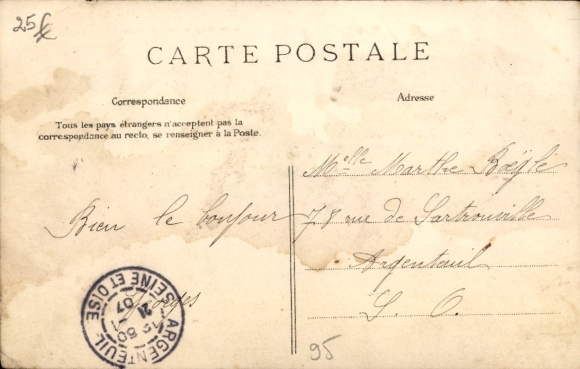 25f
CARTE POSTALE
Correspondance
Tous les pays étrangers n'acceptent pas la
correspondance au recto, se renseigner à la Poste.
Bien le bonjour
Adresse
Melle Marthe
rue de Sartrouville
Argenteuil
S. O.
ARGENTEUIL
SEINE ET OISE
21
07
95